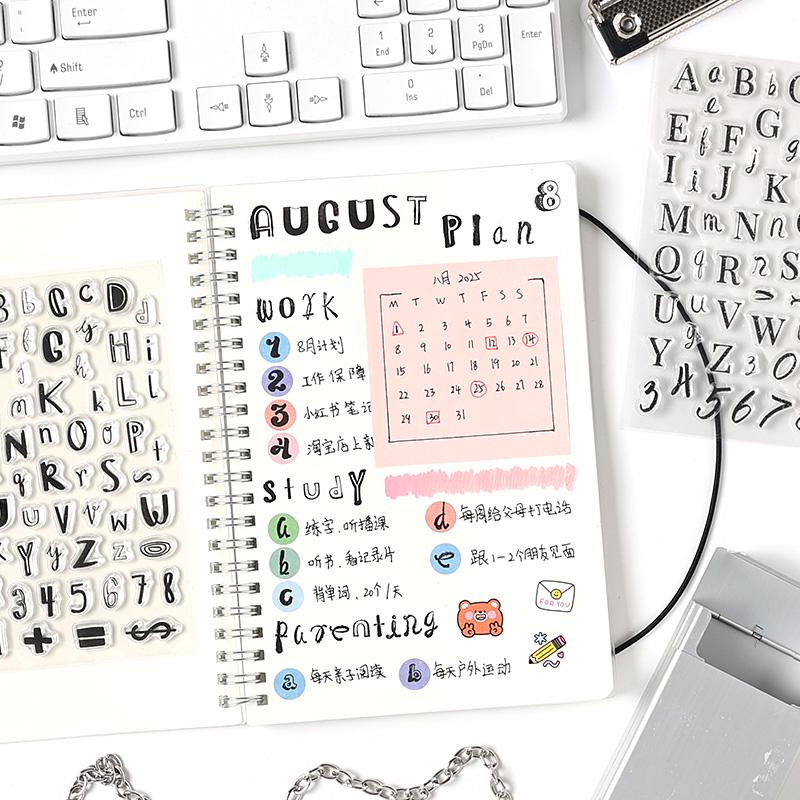 Enter
Shift
Ctrl
1
End
2
3
PgDn
Enter
0
Ins
.
Del
AUGUST Plan 8
八月 2025
M T W T F S S
1 2 3 4 5 6 7
8 9 10 11 12 13 14
15 16 17 18 19 20 21
22 23 24 25 26 27 28
29 30 31
WORK
1 8月计划
2 工作保障
3 小红书笔记
4 淘宝店上新
Study
a 练字、听播课
b 听书、看记录片
c 背单词、20个/天
d 每周给父母打电话
e 跟1-2个朋友见面
FOR YOU
Parenting
a 每天亲子阅读
b 每天户外运动
B b C c D d
G g H i
K k L l
N n O o P p
q R r S s
U u V v w W
X y Y Z z
3 4 5 6 7 8
+ = $
A a B b C
e
E f F G g
I i J j K
M m N n
Q q R r S
U u V v W
Y y Z 3 0
3 4 5 6 7 8